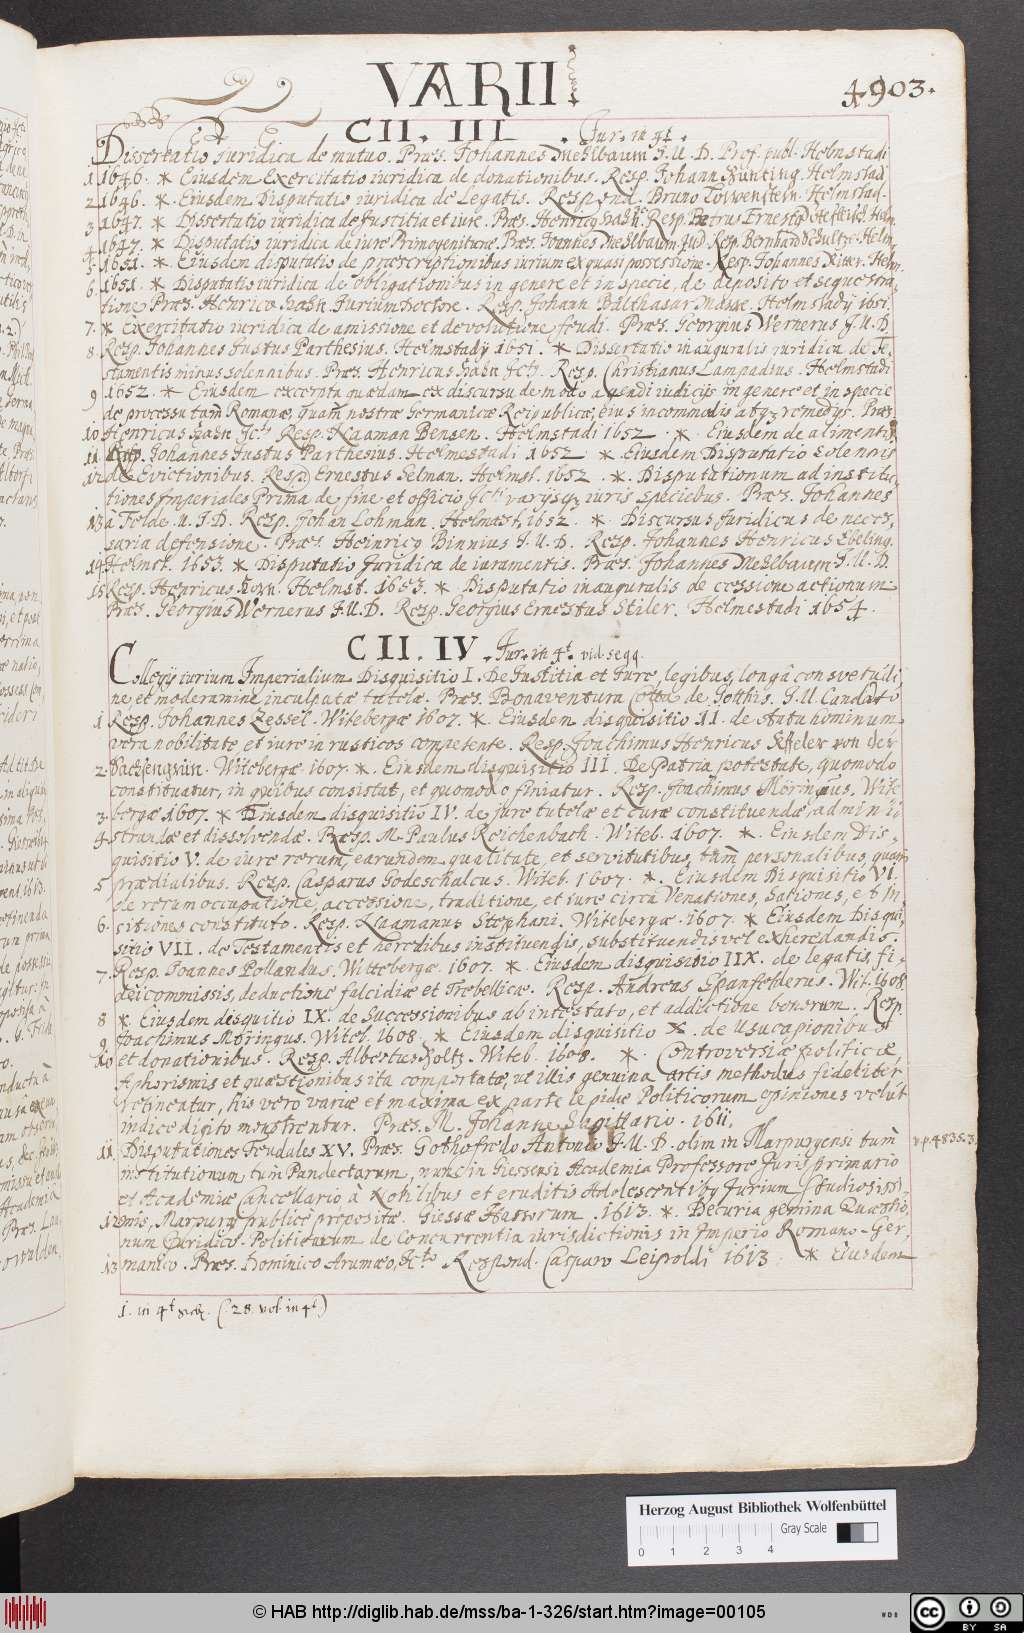 VARII
4903.
CII. III. Jur. in 4t.
Dissertatio Juridica de mutuo. Præs. Johannes Mehlbaum J. U. D. Prof. publ. Helmstadi
1 1646. * Eiusdem Exercitatio iuridica de donationibus. Resp. Johann Helmstad
2 1646. * Eiusdem Disputatio iuridica de Legatis. Respond. Bruno Helmstad.
3 1647. * Dissertatio iuridica de Justitia et iure. Præs. Henrico Hahn. Resp. Petrus Ernestus
4 1647. * Disputatio iuridica de iure Primogenituræ. Præs. Joannes Mehlbaum JUD. Resp. Bernhard Schultze. Helm.
5 1651. * Eiusdem disputatio de præscriptionibus iurium ex quasi possessione. Resp. Johannes Helm.
6. 1651. * Disputatio iuridica de obligationibus in genere et in specie, de deposito et sequestra,
tione Præs. Henrico Hahn Jurium Doctore. Resp. Johann Balthasar Helmstadij 1651.
7. * Exercitatio iuridica de amissione et devolutione feudi. Præs. Georgius Wernerus J. U. D.
8. Resp. Johannes Justus Parthesius. Helmstadij 1651. * Dissertatio inauguralis iuridica de Te,
stamentis minus solennibus. Præs. Henricus Hahn Jcts. Resp. Christianus Lampadius. Helmstadi
9 1652. * Eiusdem excerpta quædam ex discursu de modo agendi iudicijs in genere et in specie
de processu tam Romanæ, quam nostræ Germanicæ Reipublicæ, eius incommodis atq; remedijs. Præs.
10 Henricus Hahn Jcts. Resp. Naaman Bensen. Helmstadi 1652. * Eiusdem de alimentis
11. Resp. Johannes Justus Parthesius. Helmestadi 1652 * Eiusdem Disputatio Solennis
12 de Evictionibus. Resp. Ernestus Selman. Helmst. 1652. * Disputationum ad institu,
tiones Imperiales Prima de fine et officio Jcti varijsq; iuris speciebus. Præs. Johannes
13 à Felde. U. J. D. Resp. Johan Lohman. Helmæst. 1652. * Discursus Juridicus de neces,
saria defensione. Præs. Heinrico Binnius J. U. D. Resp. Johannes Henricus Ebeling.
14 Helmst. 1653. * Disputatio Juridica de iuramentis. Præs. Johannes Mehlbaum J. U. D.
15 Resp. Henricus Horn. Helmst. 1653. * Disputatio inauguralis de cessione actionum
Præs. Georgius Wernerus J. U. D. Resp. Georgius Ernestus Stiler. Helmestadi 1654.
CII. IV. Jur. in 4t. vid. seqq.
Collegij iurium Imperialium Disquisitio I. De Justitia et Jure, legibus, longâ consvetudi,
ne et moderamine inculpatæ tutelæ. Præs. Bonaventura de Gothis. J. U. Candat.
1 Resp. Johannes Zessel. Witebergæ 1607. * Eiusdem disquisitio II. de statu hominum
vera nobilitate, et iure in rusticos competente. Resp. Joachimus Henricus von der
2. Sachsengrün. Witebergæ. 1607. * Eiusdem disquisitio III. De Patria potestate, quomodo
constituatur, in quibus consistat, et quomodo finiatur. Resp. Joachimus Möringus. Wite
3. bergæ 1607. * Eiusdem disquisitio IV. de jure tutelæ et curæ constituendæ, admini
4 strandæ et dissolvendæ. Resp. M. Paulus Reichenbach. Witeb. 1607. * Eiusdem Dis,
quisitio V. de iure rerum, earundem qualitate, et servitutibus, tam personalibus, quam
5 prædialibus. Resp. Casparus Godeschalcus. Witeb. 1607. * Eiusdem Disquisitio VI.
de rerum occupatione, accessione, traditione, et iure circa Venationes, Sationes, et In
6. citiones constituto. Resp. Naamanus Stephani. Witebergæ. 1607. * Eiusdem Disqui,
sitio VII. de Testamentis et heredibus instituendis, substituendis vel exheredandis.
7. Resp. Joannes Pollandus. Wittebergæ 1607. * Eiusdem disquisitio IIX. de legatis, fi,
deicommissis, deductione falcidiæ et Trebellicæ. Resp. Andreas Spanfelderus. Wit. 1608
8 * Eiusdem disquitio IX. de Successionibus ab intestato, et addictione bonorum. Resp.
9 Joachimus Möringus. Witeb. 1608. * Eiusdem disquisitio X. de usucapionibus
10 et donationibus. Resp. Albertus Holtz. Witeb. 1608. * Controversiæ politicæ,
Aphorismis et quæstionibus ita comportatæ, ut illis genuina artis methodus fideliter
retineatur, his verò variæ et maxima ex parte lepidæ Politicorum opiniones velut
indice digito monstrentur. Præs. M. Johanne Sagittario. 1611.
11 Disputationes Feudales XV. Præs. Gothofredo Antonio J. U. D. olim in Marpurgensi tum
v. p. 4835.3.
institutionum tum Pandectarum, nunc in Giessensi Academia Professore Juris primario
et Academiæ Cancellario à Nobilibus et eruditis Adolescentibus Jurium Studiosissi,
12 mis, Marpurg publicè propositæ. Giessæ Hassorum. 1613. * Decuria gemina Quæstio,
num Juridico-Politicarum de Concurrentia iurisdictionis in Imperio Romano-Ger,
13 manico. Præs. Dominico Arumæo, Jcto Respond. Casparo Leipoldi 1613. * Eiusdem
1. in 4t (28. vol. in 4t)
Herzog August Bibliothek Wolfenbüttel
Gray Scale
0 1 2 3 4
© HAB http://diglib.hab.de/mss/ba-1-326/start.htm?image=00105
WDB
cc BY SA